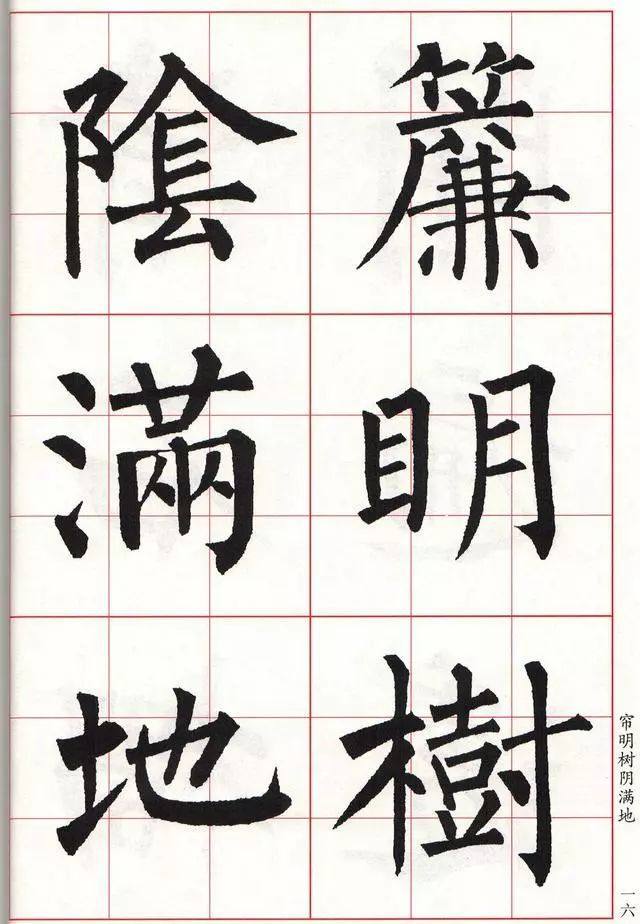 簾明樹
陰滿地
帘明树阴满地
一六